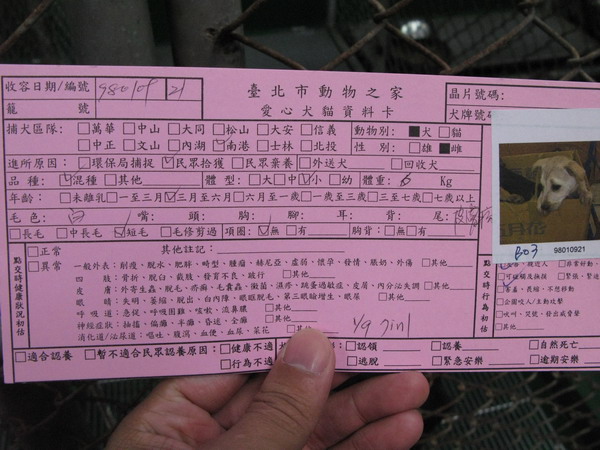 臺北市動物之家
愛心犬貓資料卡
收容日期/編號 980109 21
籠 號
晶片號碼:
犬牌號碼
捕犬區隊: □萬華 □中山 □大同 □松山 □大安 □信義
□中正 □文山 □內湖 ☑南港 □士林 □北投
動物別: ■犬 □貓
性 別: □雄 ■雌
進所原因: □環保局捕捉 ☑民眾拾獲 □民眾棄養 □外送犬 □回收犬
品 種: ☑混種 □其他
體 型: □大 □中 ☑小 □幼 體重: 6 Kg
年齡: □未離乳 □一至三月 ☑三月至六月 □六月至一歲 □一至三歲 □三至七歲 □七歲以上
毛 色: 白 嘴: 頭: 胸: 腳: 耳: 背: 尾:
□長毛 □中長毛 ☑短毛 □毛修剪過 項圈: ☑無 □有 胸背: □無 □有
點交時健康狀況初估
□正常 其他註記:
□異常 一般外表: 削瘦、脫水、肥胖、畸型、腫瘤、赫尼亞、虛弱、懷孕、發情、脹奶、外傷 □其他
四 肢: 骨折、脫臼、截肢、發育不良、跛行 □其他
皮 膚: 外寄生蟲、脫毛、疥癬、毛囊蟲、黴菌、濕疹、跳蚤過敏症、皮屑、內分泌失調 □其他
眼 睛: 失明、萎縮、脫出、白內障、眼瞼脫毛、第三眼瞼增生、眼屎 □其他
呼 吸 道: 急促、呼吸困難、咳嗽、流鼻膿 □其他
神經症狀: 抽搐、偏癱、半癱、昏迷、全癱 □其他
消化道/泌尿道: 嘔吐、腹瀉、血便、血尿、菜花 □其他
1/9 7in1
點交時行為初估
□畜養、畏縮、不想移動
□企圖咬人/主動攻擊
□吠叫、哭號、發出威脅聲
□其他
B03 98010921
□適合認養 □暫不適合民眾認養原因: □健康不適 □認領 □認養 □自然死亡
□行為不 □逃脫 □緊急安樂 □逾期安樂